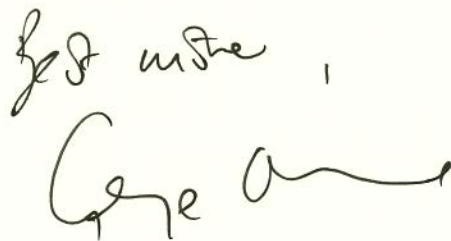 Best wishes,
George